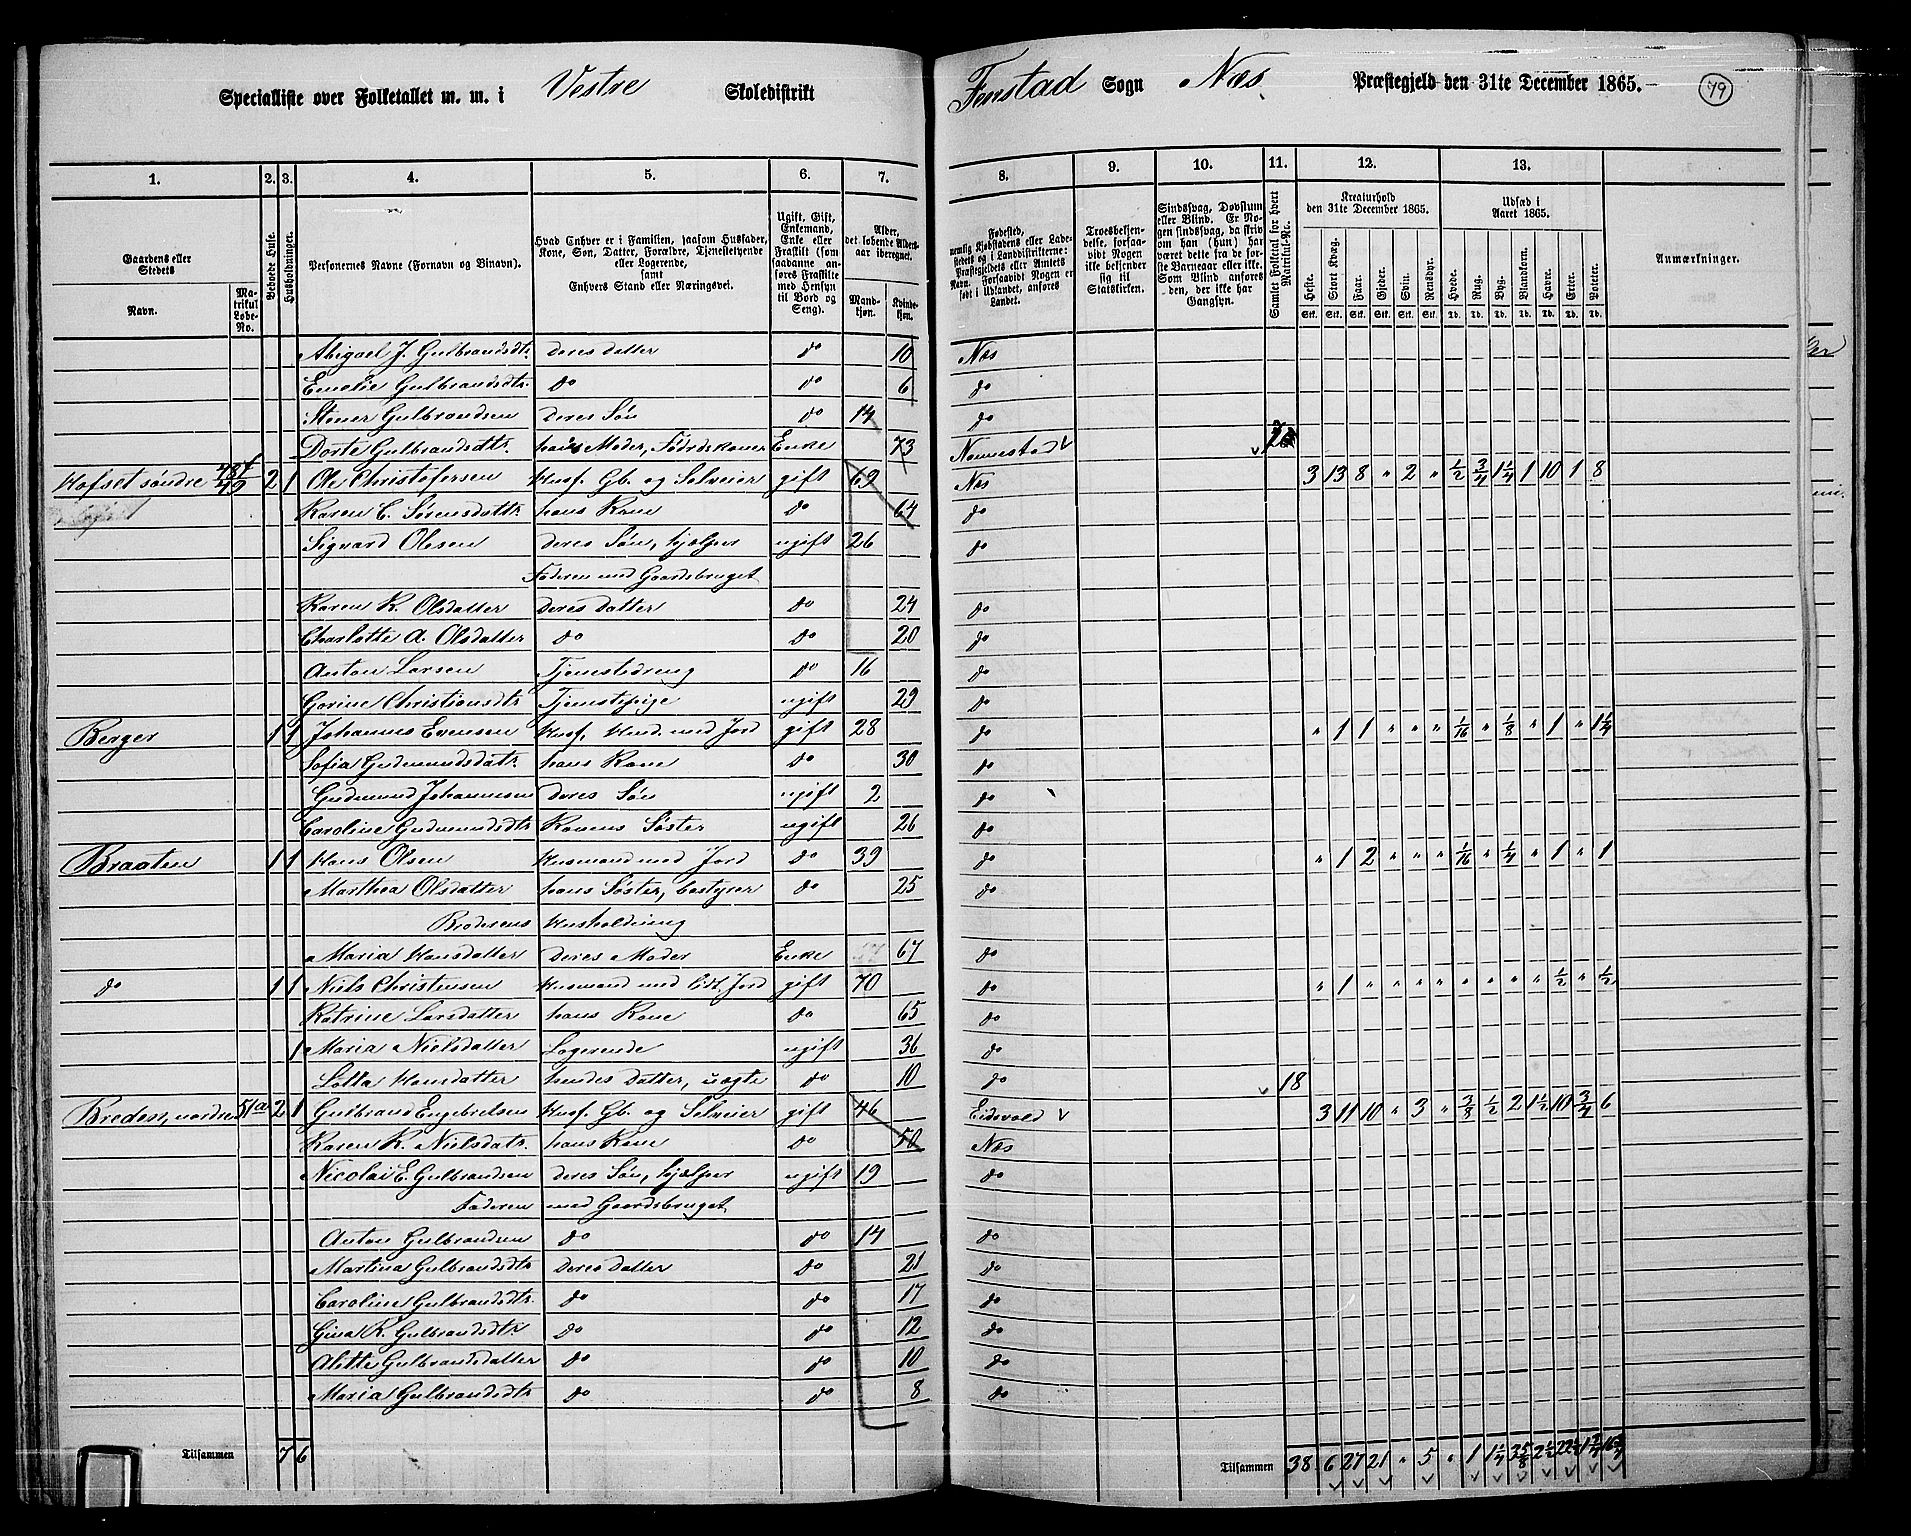 Specialliste over Folketallet m. m. i Vestre Skoledistrikt Fenstad Sogn Næs Præstegjeld den 31te December 1865. 79
1. 2. 3. 4. 5. 6. 7. 8. 9. 10. 11. 12. 13.
Gaardens eller Stedets
Navn.
Matrikul Løbe-No.
Beboede Huse.
Husholdninger.
Personernes Navne (Fornavn og Binavn).
Hvad Enhver er i Familien, saasom Husfader, Kone, Søn, Datter, Forældre, Tjenestetyende eller Logerende, samt Enhvers Stand eller Næringsvei.
Ugift, Gift, Enkemand, Enke eller Fraskilt (som saadanne anføres Fraskilte med Hensyn til Bord og Seng).
Alder, det løbende Alders-aar iberegnet.
Mandkjøn. Kvindekjøn.
Fødested, nemlig Kjøbstadens eller Ladestedets og i Landdistrikterne: Præstegjeldets eller Amtets Navn. Forsaavidt Nogen er født i Udlandet, anføres Landet.
Troesbekjendelse, forsaavidt Nogen ikke bekjender sig til Statskirken.
Sindssvag, Døvstum eller Blind. Er Nogen sindssvag, da skriv om han (hun) har været dette fra de første Barneaar eller ikke. Som Blind anføres den, der ikke har Gangsyn.
Samlet Folketal for hvert Matrikul-Nr.
Kreaturhold den 31te December 1865.
Heste. Stort Kvæg. Faar. Gjeder. Svin. Rensdyr.
Udsæd i Aaret 1865.
Hvede. Rug. Byg. Blandkorn. Havre. Erter. Poteter.
Anmærkninger.
Abigael J. Gulbrandsdt. deres datter do 10 Næs
Emelie Gulbrandsdtr. do do 6 do
Stener Gulbrandsen deres Søn do 14 do
Dorte Gulbrandsdtr. hans Moder, Føderaadskone Enke 73 Nannestad
Hofset søndre 48/49 2 1 Ole Christofersen Husf. Gb. og Selveier gift 69 Næs 3 13 8 " 2 " 1/2 3/4 1 1/4 1 10 1 8
Karen C. Sørensdattr. hans Kone do 64 do
Sigvard Olesen deres Søn, hjælper ugift 26 do
Faderen med Gaardsbruget
Karen K. Olsdatter deres datter do 24 do
Charlotte A. Olsdatter do do 20 do
Anton Larsen Tjenestedreng do 16 do
Gorine Christiansdtr Tjenstepige ugift 29 do
Berger 1 1 Johannes Evensen Husf. Husm. med Jord gift 28 do " 1 1 " " " 1/16 " 1/8 " 1 " 1 1/4
Sofia Gudmundsdatr. hans Kone do 30 do
Gudmund Johannesen deres Søn ugift 2 do
Caroline Gudmundsdtr Konens Søster ugift 26 do
Braaten 1 1 Hans Olsen Husmand med Jord do 39 do " 1 2 " " " 1/16 " 1/4 " 1 " 1
Marthea Olsdatter hans Søster, bestyrer do 25 do
Broderens Husholdning
Maria Hansdatter deres Moder Enke 67 do
do 1 1 Niels Christensen Husmand med lidt Jord gift 70 do " 1 " " " " " " " " 1/2 " 1/2
Katrine Larsdatter hans Kone do 65 do
1 Maria Nielsdatter Logerende ugift 36 do
Lotta Hansdatter hendes datter, uægte do 10 do 18
Breden, nordre 51a 2 1 Gulbrand Engebretsen Husf. Gb. og Selveier gift 46 Eidsvold 3 11 10 " 3 " 3/8 1/2 2 1 1/2 10 3/4 6
Karen K. Nielsdatr. hans Kone do 50 Næs
Nicolai E. Gulbrandsen deres Søn, hjælper ugift 19 do
Faderen med Gaardsbruget
Anton Gulbrandsen do do 14 do
Martina Gulbrandsdtr deres datter do 21 do
Caroline Gulbrandsdtr. do do 17 do
Gina K. Gulbrandsdtr do do 12 do
Alette Gulbrandsdatter do do 10 do
Maria Gulbrandsdtr do do 8 do
Tilsammen 7 6 Tilsammen 38 6 27 21 " 5 " 1 1 1/4 3 5/8 2 1/2 22 1/2 1 3/4 16 3/4